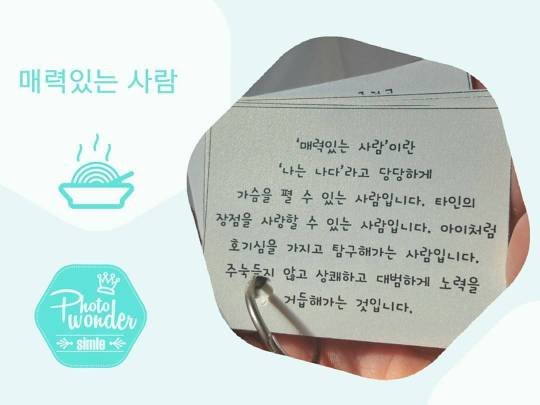 매력있는 사람
'매력있는 사람'이란
'나는 나다'라고 당당하게
가슴을 펼 수 있는 사람입니다. 타인의
장점을 사랑할 수 있는 사람입니다. 아이처럼
호기심을 가지고 탐구해가는 사람입니다.
주눅들지 않고 상쾌하고 대범하게 노력을
거듭해가는 것입니다.
Photo
wonder
simle